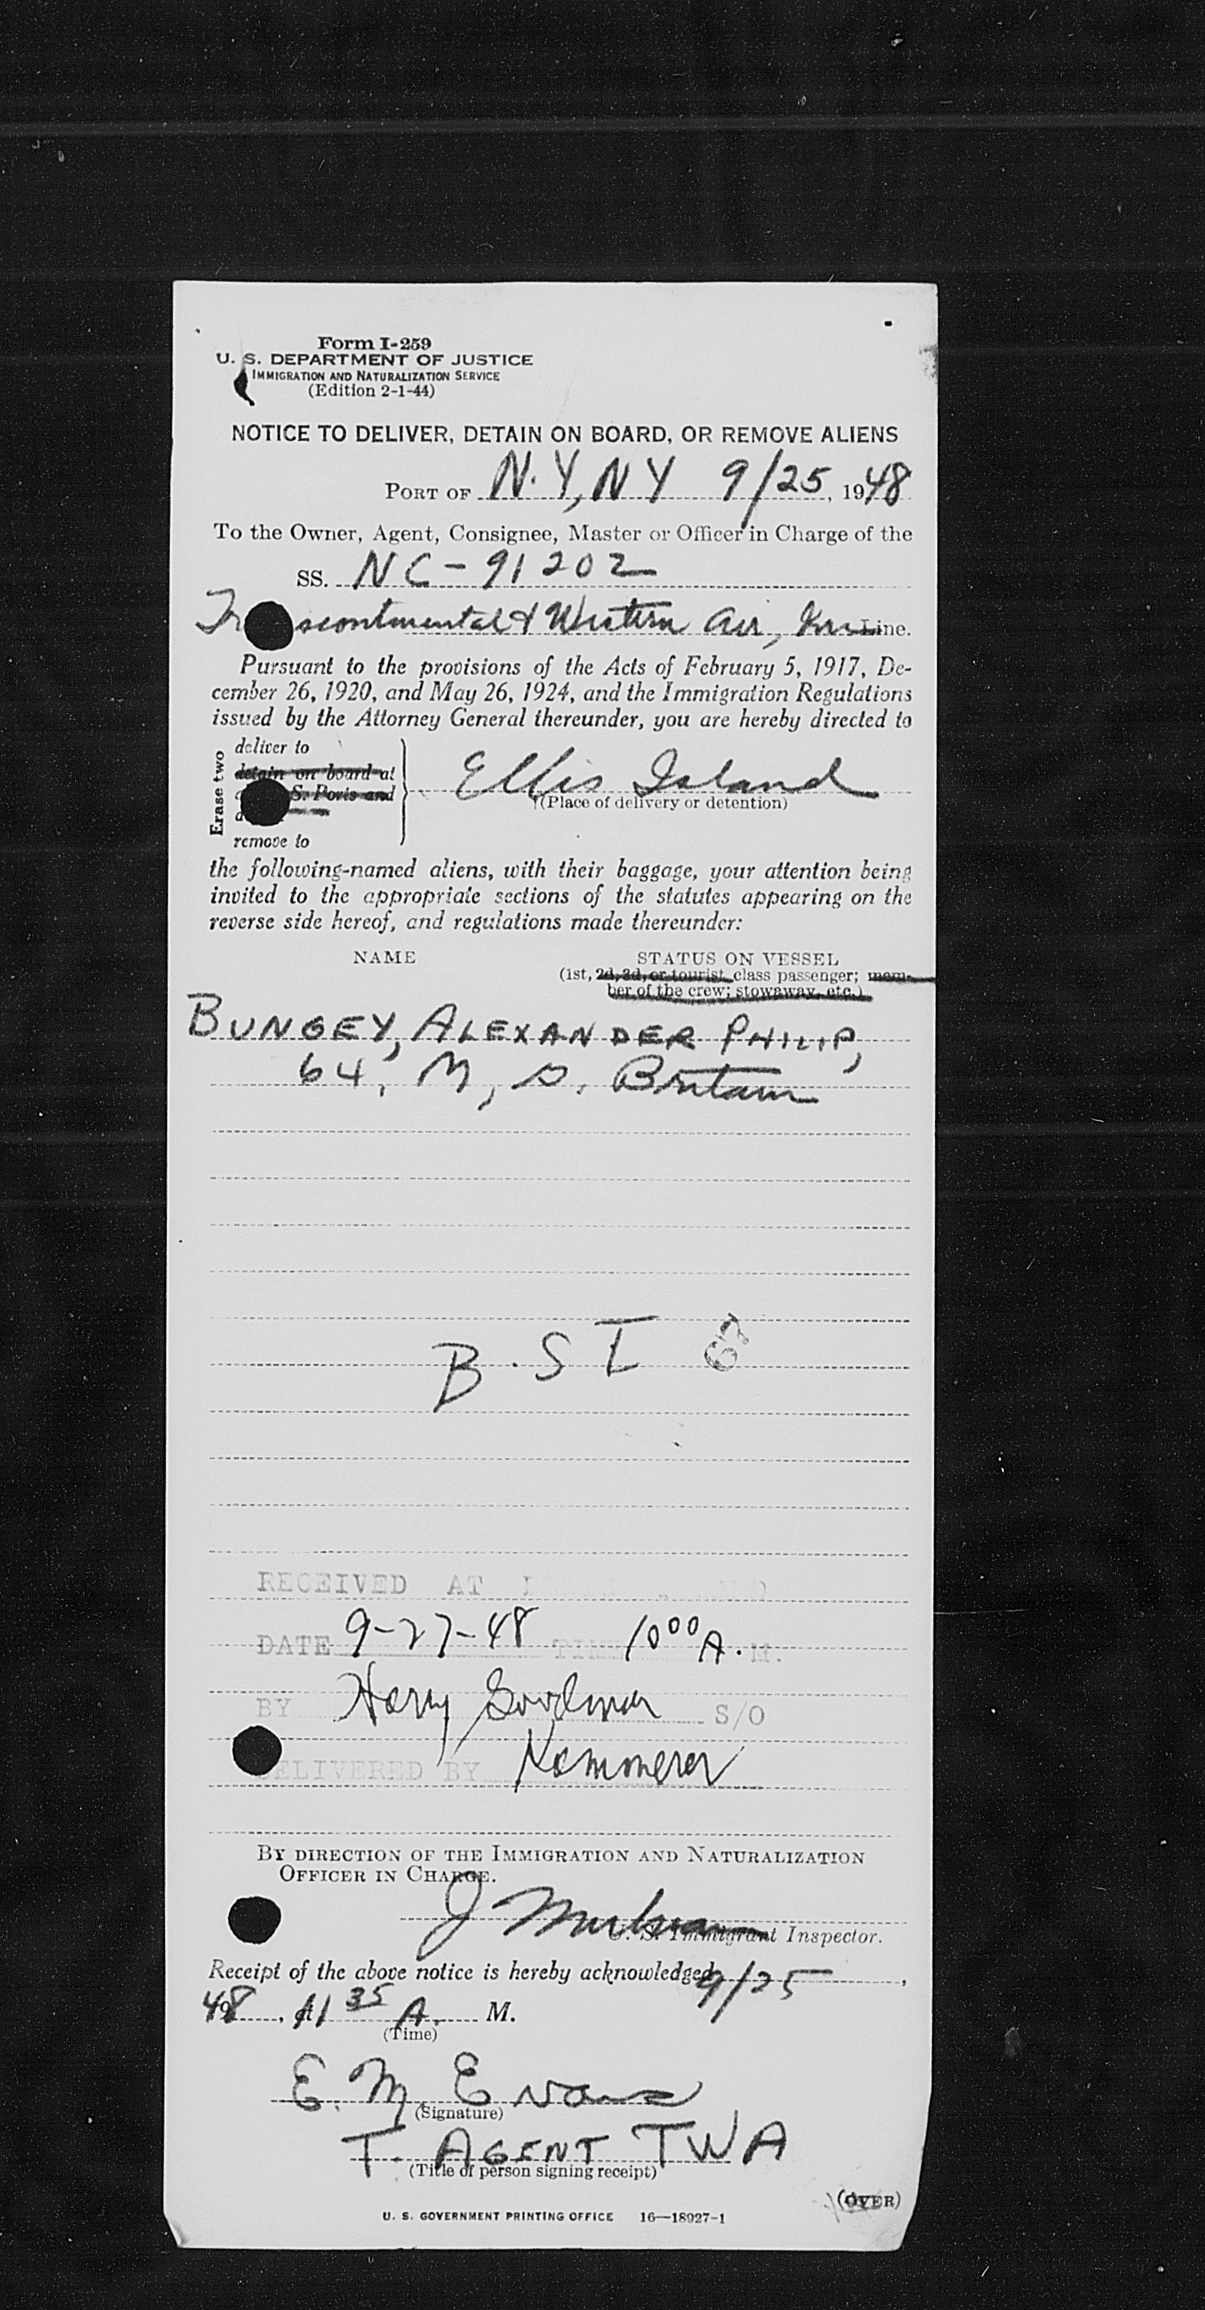 Form I-259
U. S. DEPARTMENT OF JUSTICE
IMMIGRATION AND NATURALIZATION SERVICE
(Edition 2-1-44)
NOTICE TO DELIVER, DETAIN ON BOARD, OR REMOVE ALIENS
PORT OF N.Y, NY 9/25, 1948
To the Owner, Agent, Consignee, Master or Officer in Charge of the
SS. NC-91202
Tr scontinental & Western Air, Inc Line.
Pursuant to the provisions of the Acts of February 5, 1917, De-
cember 26, 1920, and May 26, 1924, and the Immigration Regulations
issued by the Attorney General thereunder, you are hereby directed to
Erase two
deliver to
detain on board at
S. Ports and
remove to
Ellis Island
(Place of delivery or detention)
the following-named aliens, with their baggage, your attention being
invited to the appropriate sections of the statutes appearing on the
reverse side hereof, and regulations made thereunder:
NAME STATUS ON VESSEL
(1st, 2d, 3d, or tourist class passenger; mem-
ber of the crew; stowaway, etc.)
BUNGEY, ALEXANDER PHILIP,
64, M, S. Britain
B.SI 67
RECEIVED AT
DATE 9-27-48 TIME 10 00 A. M.
BY Harry Goodman S/O
DELIVERED BY Kammerer
BY DIRECTION OF THE IMMIGRATION AND NATURALIZATION
OFFICER IN CHARGE.
J
U. S. Immigrant Inspector.
Receipt of the above notice is hereby acknowledged 9/25,
48, at 11 35 A. M.
(Time)
E. M Evans
(Signature)
T. AGENT TWA
(Title of person signing receipt)
(OVER)
U. S. GOVERNMENT PRINTING OFFICE 16—18927-1